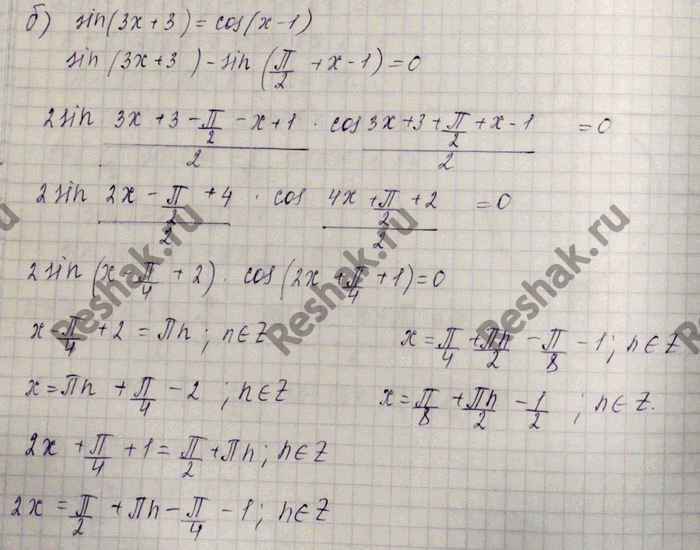 б) sin(3x+3)=cos(x-1)
sin(3x+3)-sin(π/2+x-1)=0
2sin (3x+3-π/2-x+1)/2 · cos (3x+3+π/2+x-1)/2 =0
2sin (2x-π/2+4)/2 · cos (4x+π/2+2)/2 =0
2sin(x-π/4+2)·cos(2x+π/4+1)=0
x-π/4+2=πn; n∈Z
x=πn+π/4-2; n∈Z
2x+π/4+1=π/2+πn; n∈Z
2x=π/2+πn-π/4-1; n∈Z
x=π/4+πn/2-π/8-1; n∈Z
x=π/8+πn/2-1/2; n∈Z.
Reshak.ru
Reshak.ru
Reshak.ru